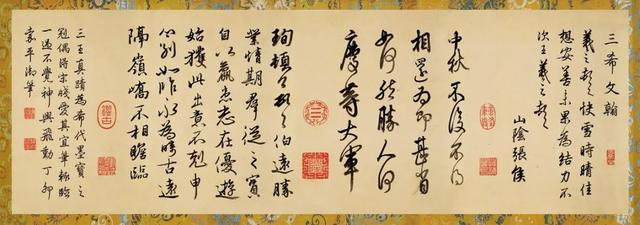 三希文翰
羲之頓首快雪時晴佳
想安善未果為結力不
次王羲之頓首
山陰張侯
中秋不復不得
相還為即甚省
如何然勝人何
慶等大軍
珣頓首頓首伯遠勝
業情期群從之寶
自以羸患志在優遊
始獲此出意不剋申
分別如昨永為疇古遠
隔嶺嶠不相瞻臨
三王真蹟為希代墨寶之
冠偶得宋牋愛其宜筆輒臨
一過不覺神與飛動丁卯
嘉平御筆